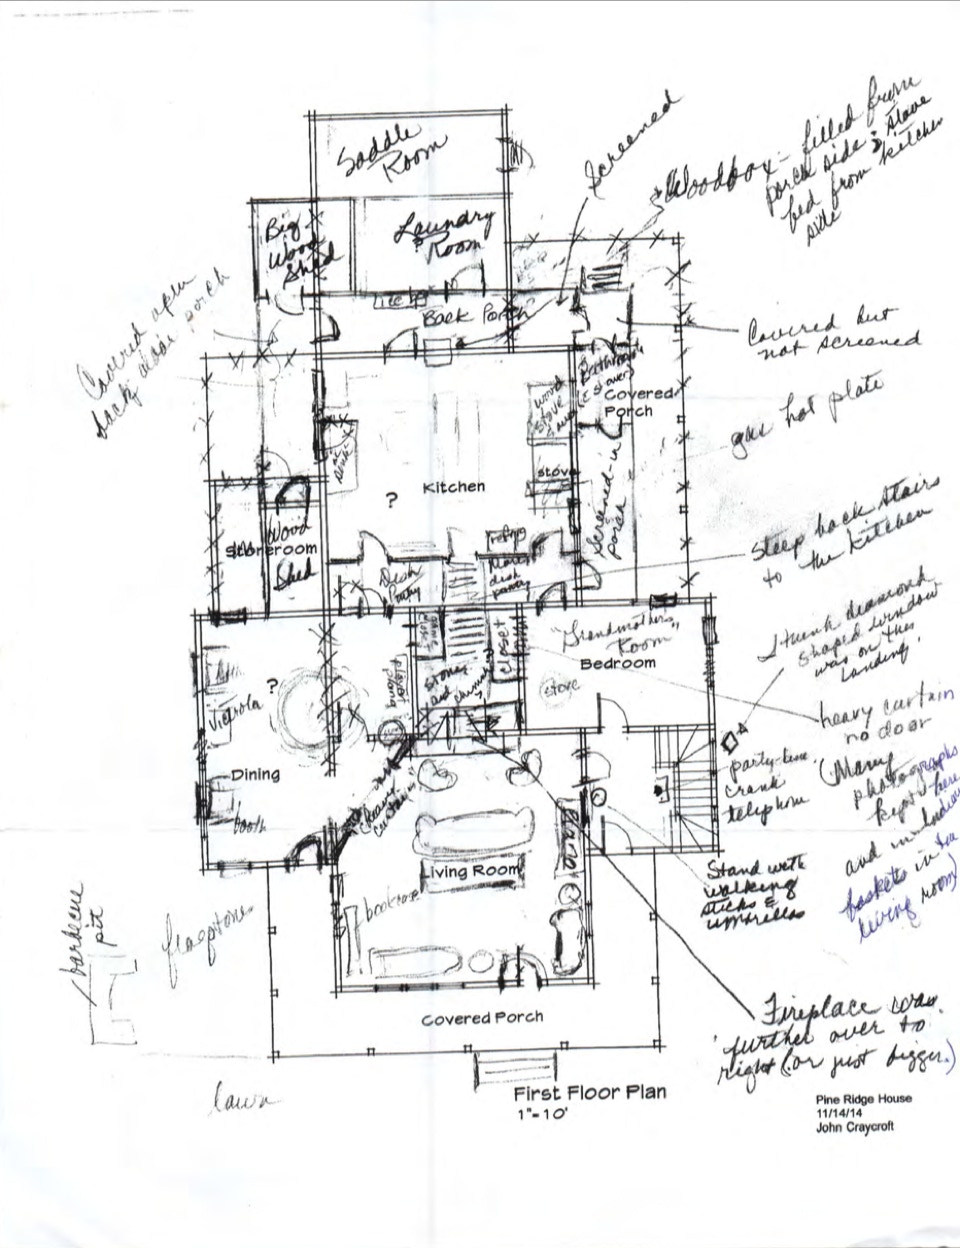 Saddle
Room
Screened
Woodbox - filled from
porch side & stove
fed from kitchen
side
Big
Wood
Shed
Laundry
Room
Back Porch
Covered open
back door porch
Covered but
not screened
Bathroom
Covered
Porch
wood
stove
gas hot plate
stove
Kitchen
?
Screened-in
porch
refrig
Steep back stairs
to the kitchen
Storeroom
Wood
Shed
Dish
Pantry
I think diamond
shaped window
was on this
landing.
"Grandmother's"
Room
Bedroom
closet
stove
player
piano
?
Victrola
heavy curtain
no door
party-line
crank
telephone
(Many
photographs
kept here
and in Indian
baskets in the
living room)
Dining
heavy
curtains
booth
piano
Living Room
bookcase
Stand with
walking
sticks &
umbrellas
barbecue
pit
flagstones
Covered Porch
Fireplace was
further over to
right (or just bigger.)
lawn
First Floor Plan
1"-10'
Pine Ridge House
11/14/14
John Craycroft